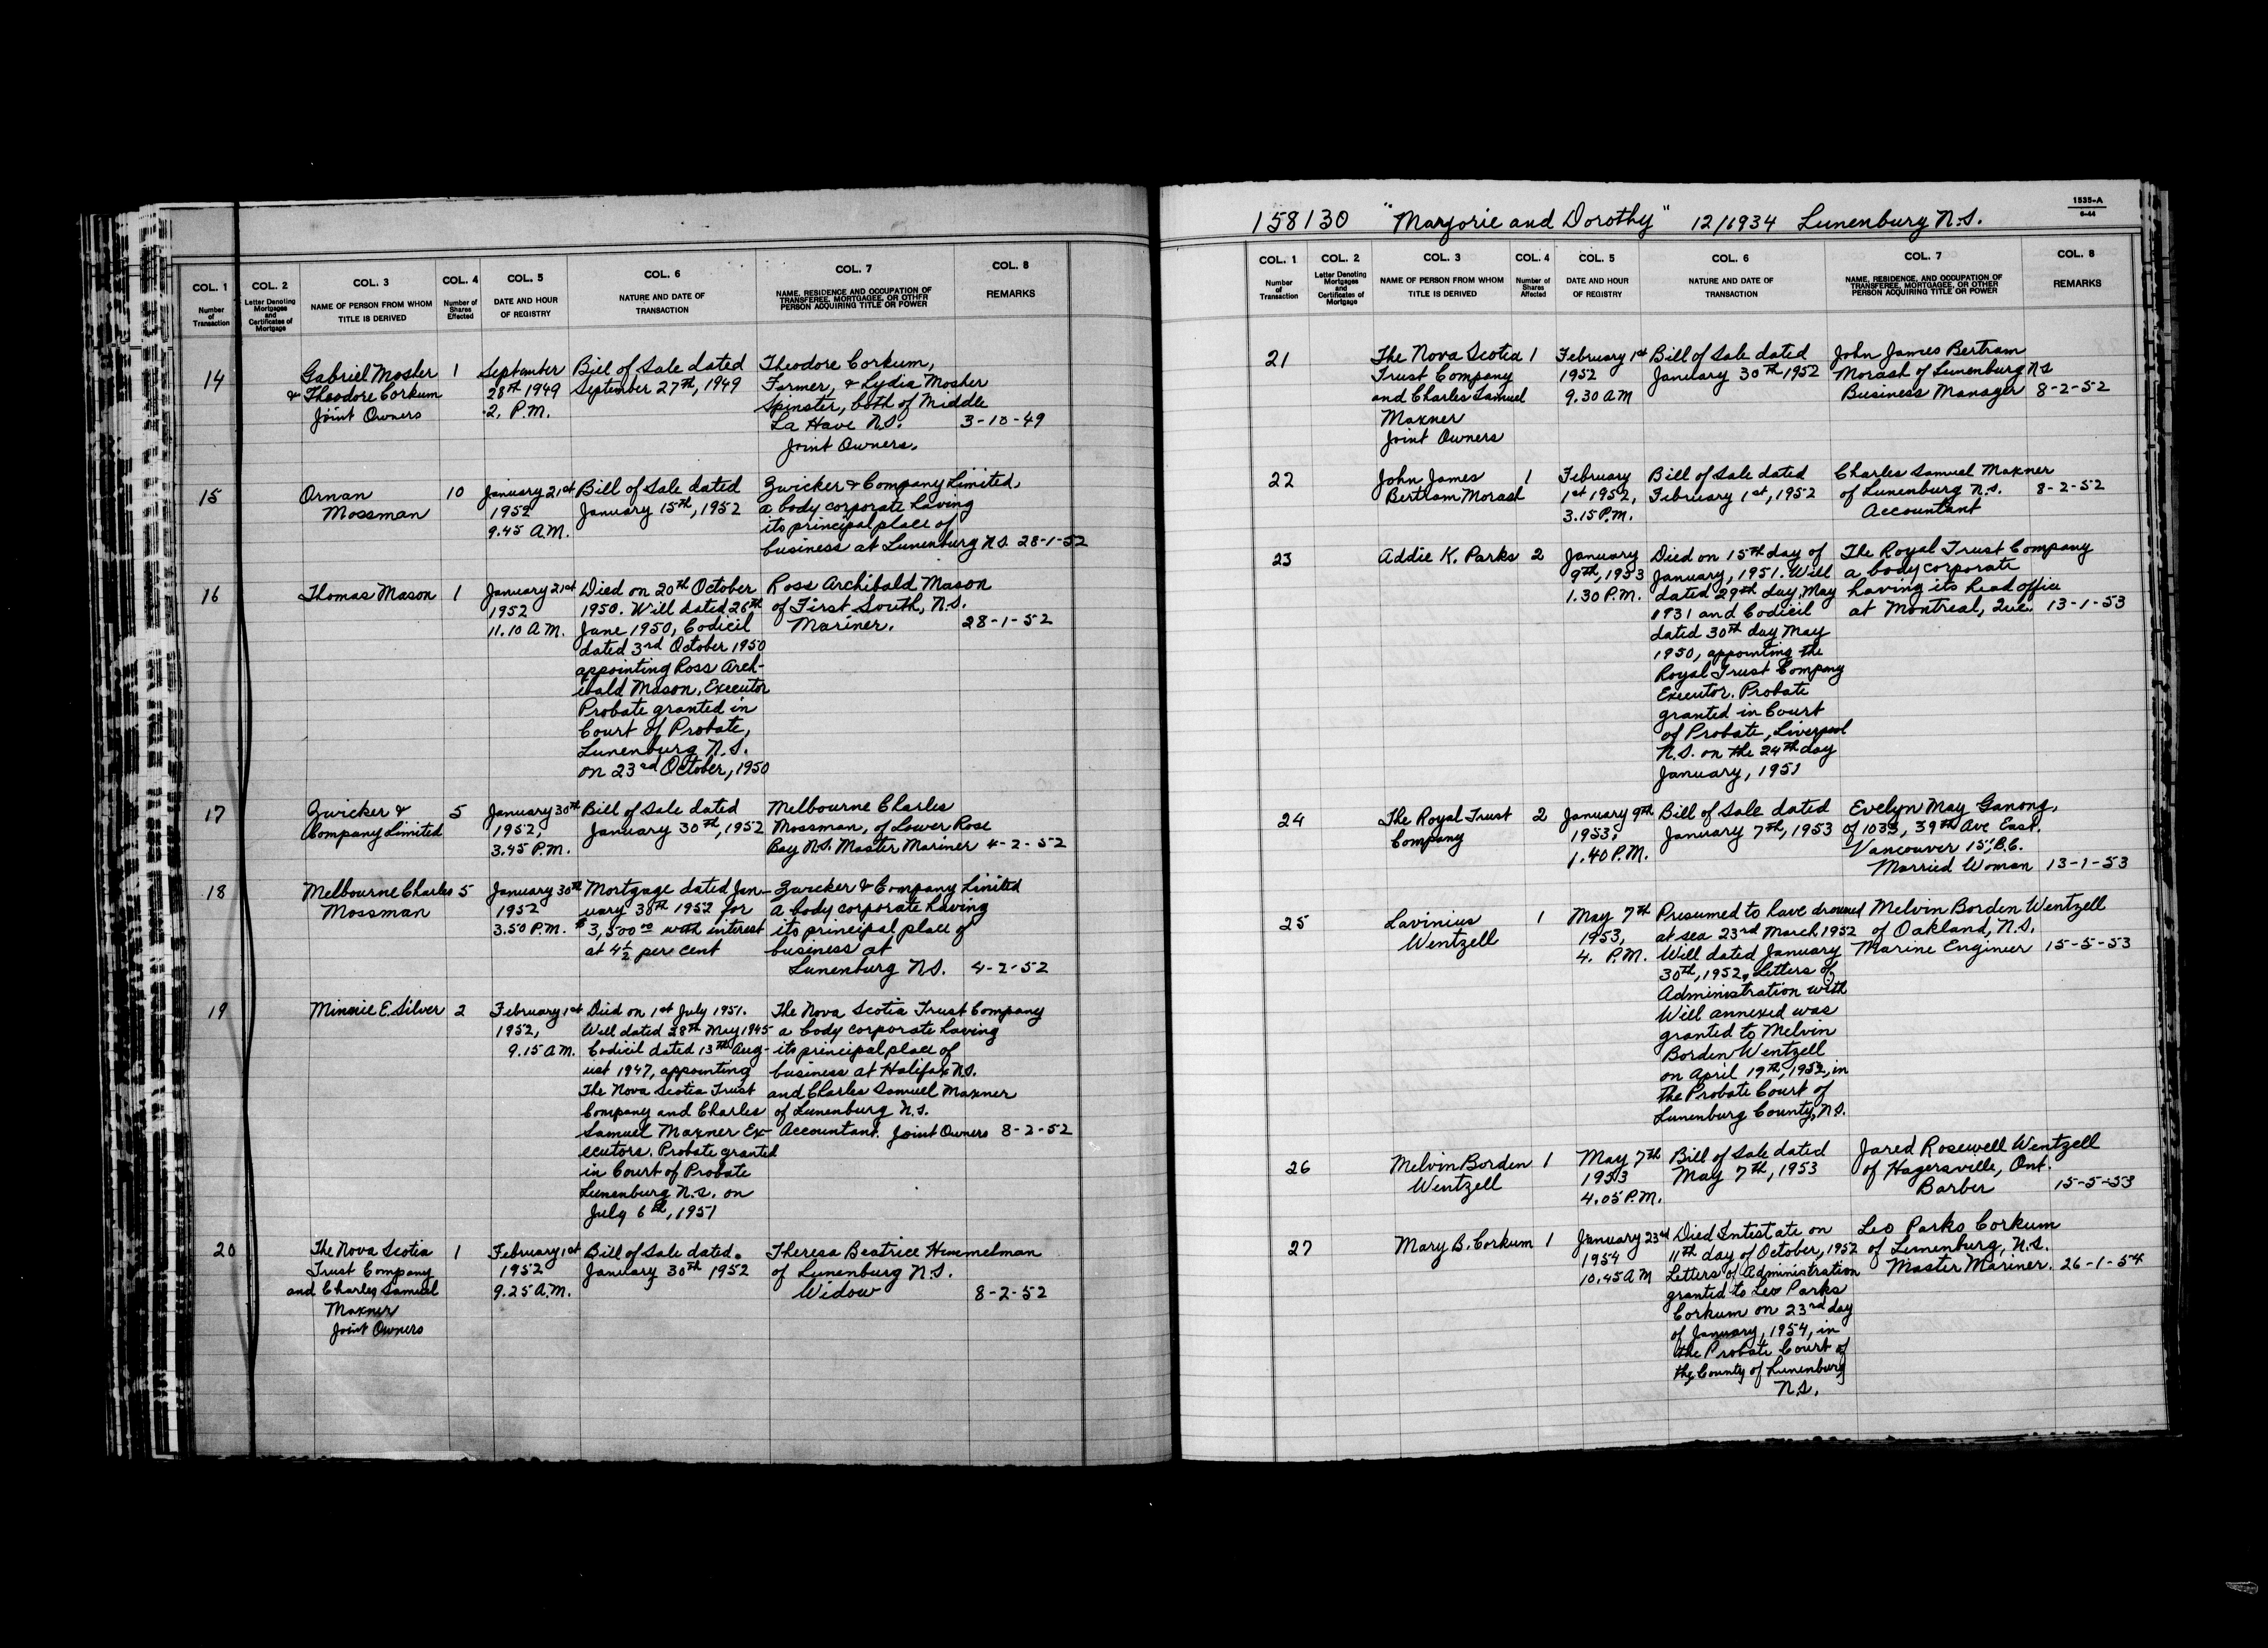 COL. 1 COL. 2 COL. 3 COL. 4 COL. 5 COL. 6 COL. 7 COL. 8
Number of Transaction
Letter Denoting Mortgages and Certificates of Mortgage
NAME OF PERSON FROM WHOM TITLE IS DERIVED
Number of Shares Effected
DATE AND HOUR OF REGISTRY
NATURE AND DATE OF TRANSACTION
NAME, RESIDENCE AND OCCUPATION OF TRANSFEREE, MORTGAGEE, OR OTHER PERSON ACQUIRING TITLE OR POWER
REMARKS
14
Gabriel Mosher
& Theodore Corkum
Joint Owners
1
September
28th 1949
2, P.M.
Bill of Sale dated
September 27th, 1949
Theodore Corkum,
Farmer, & Lydia Mosher
Spinster, both of Middle
La Have N.S. 3-10-49
Joint Owners.
15
Ornan
Mossman
10
January 21st
1952
9.45 A.M.
Bill of Sale dated
January 15th, 1952
Zwicker & Company Limited,
a body corporate having
its principal place of
business at Lunenburg N.S. 28-1-52
16
Thomas Mason
1
January 21st
1952
11.10 A.M.
Died on 20th October
1950. Will dated 26th
June 1950, Codicil
dated 3rd October 1950
appointing Ross Arch-
ibald Mason, Executor
Probate granted in
Court of Probate,
Lunenburg N.S.
on 23rd October, 1950
Ross Archibald Mason
of First South, N.S.
Mariner. 28-1-52
17
Zwicker &
Company Limited
5
January 30th
1952,
3.45 P.M.
Bill of Sale dated
January 30th, 1952
Melbourne Charles
Mossman, of Lower Rose
Bay N.S. Master Mariner 4-2-52
18
Melbourne Charles
Mossman
5
January 30th
1952
3.50 P.M.
Mortgage dated Jan-
uary 30th 1952 for
$3,500 00 with interest
at 4 1/2 per cent
Zwicker & Company Limited
a body corporate having
its principal place of
business at
Lunenburg N.S. 4-2-52
19
Minnie E. Silver
2
February 1st
1952,
9.15 A.M.
Died on 1st July 1951.
Will dated 28th May 1945
Codicil dated 13th Aug-
ust 1947, appointing
The Nova Scotia Trust
Company and Charles
Samuel Maxner Ex-
ecutors. Probate granted
in Court of Probate
Lunenburg N.S. on
July 6th, 1951
The Nova Scotia Trust Company
a body corporate having
its principal place of
business at Halifax N.S.
and Charles Samuel Maxner
of Lunenburg N.S.
Accountant. Joint Owners 8-2-52
20
The Nova Scotia
Trust Company
and Charles Samuel
Maxner
Joint Owners
1
February 1st
1952
9.25 A.M.
Bill of Sale dated.
January 30th 1952
Theresa Beatrice Himmelman
of Lunenburg N.S.
Widow 8-2-52
158130 "Marjorie and Dorothy" 12/1934 Lunenburg N.S.
1535-A
6-44
COL. 1 COL. 2 COL. 3 COL. 4 COL. 5 COL. 6 COL. 7 COL. 8
Number of Transaction
Letter Denoting Mortgages and Certificates of Mortgage
NAME OF PERSON FROM WHOM TITLE IS DERIVED
Number of Shares Affected
DATE AND HOUR OF REGISTRY
NATURE AND DATE OF TRANSACTION
NAME, RESIDENCE, AND OCCUPATION OF TRANSFEREE, MORTGAGEE, OR OTHER PERSON ACQUIRING TITLE OR POWER
REMARKS
21
The Nova Scotia
Trust Company
and Charles Samuel
Maxner
Joint Owners
1
February 1st
1952
9.30 AM
Bill of Sale dated
January 30th 1952
John James Bertram
Morash of Lunenburg N.S
Business Manager 8-2-52
22
John James
Bertram Morash
1
February
1st 1952,
3.15 P.M.
Bill of Sale dated
February 1st, 1952
Charles Samuel Maxner
of Lunenburg N.S. 8-2-52
Accountant
23
Addie K. Parks
2
January
9th, 1953
1.30 P.M.
Died on 15th day of
January, 1951. Will
dated 29th day, May
1931 and Codicil
dated 30th day May
1950, appointing the
Royal Trust Company
Executor. Probate
granted in Court
of Probate, Liverpool
N.S. on the 24th day
January, 1951
The Royal Trust Company
a body corporate
having its head office
at Montreal, Que. 13-1-53
24
The Royal Trust
Company
2
January 9th
1953,
1.40 P.M.
Bill of Sale dated
January 7th, 1953
Evelyn May Ganong,
of 1033, 39th Ave East.
Vancouver 15, B.C.
Married Woman 13-1-53
25
Lavinius
Wentzell
1
May 7th
1953,
4. P.M.
Presumed to have drowned
at sea 23rd March 1952
Will dated January
30th, 1952, Letters of
Administration with
Will annexed was
granted to Melvin
Borden Wentzell
on April 19th, 1952, in
the Probate Court of
Lunenburg County, N.S.
Melvin Borden Wentzell
of Oakland, N.S.
Marine Engineer 15-5-53
26
Melvin Borden
Wentzell
1
May 7th
1953
4.05 P.M.
Bill of Sale dated
May 7th, 1953
Jared Rosewell Wentzell
of Hagersville, Ont.
Barber 15-5-53
27
Mary B. Corkum
1
January 23rd
1954
10.45 AM
Died Intestate on
11th day of October, 1952
Letters of Administration
granted to Leo Parks
Corkum on 23rd day
of January, 1954, in
the Probate Court of
the County of Lunenburg
N.S.
Leo Parks Corkum
of Lunenburg, N.S.
Master Mariner. 26-1-54